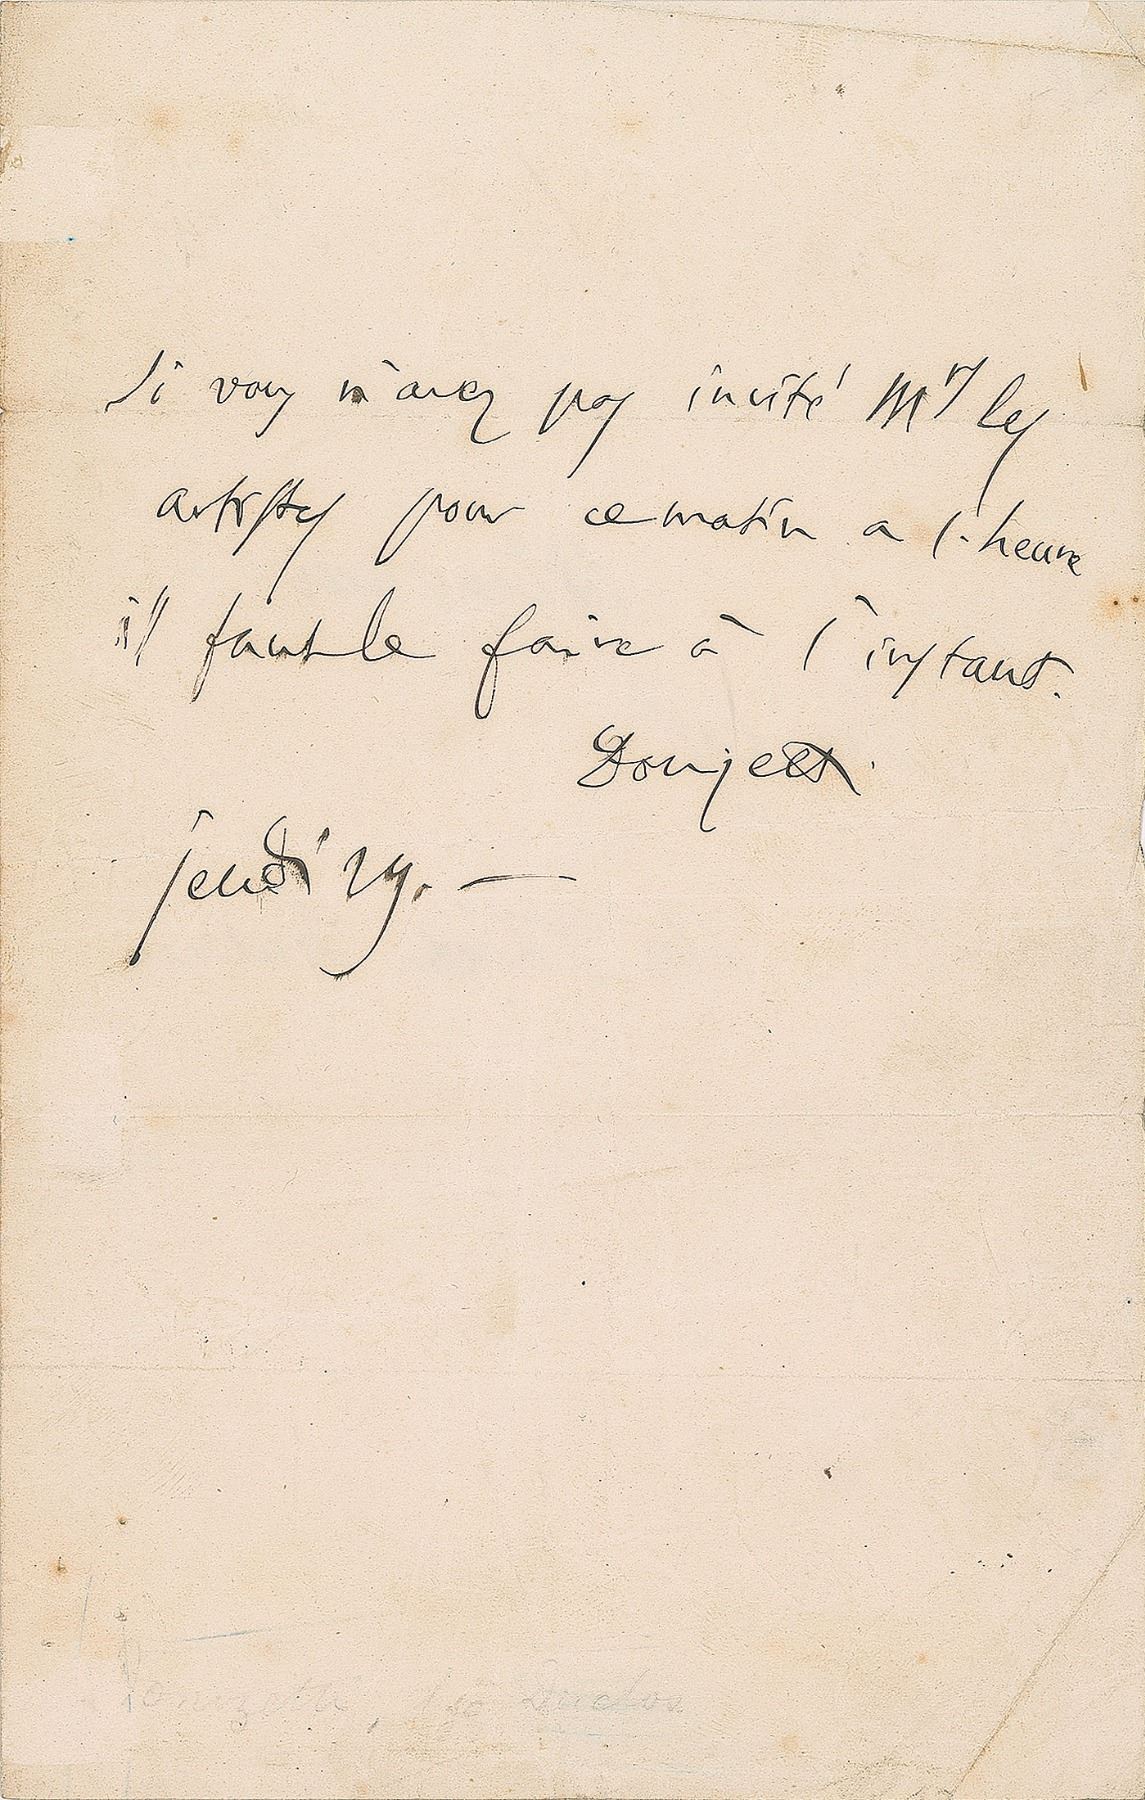 Si vous n'avez pas invité Mrs les
artistes pour ce matin a 1. heure
il faut le faire à l'instant.
Donizetti
jeudi 29. —
Donizetti,